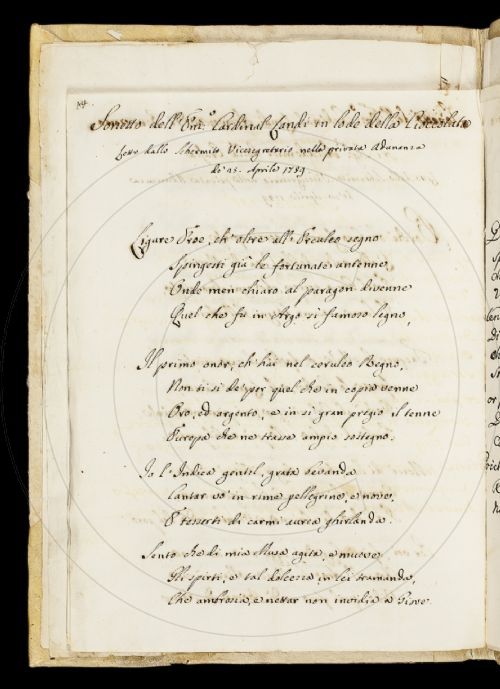 Sonetto dell' Em.º Cardinal Landi in lode della Cioccolata
Letto dallo Schermito Vicesegretario nella privata Adunanza
de' 25. Aprile 1739.
Ligure Eroe, ch' oltre all' Erculeo segno
Spingesti già le fortunate antenne,
Onde men chiaro al paragon divenne
Quel che fù in Argo sì famoso legno,
Il primo onor, ch' hai nel ceruleo Regno,
Non ti si dè per quel che in copia venne
Oro, ed argento, e in sì gran pregio il tenne
Europa che ne trasse ampio sostegno.
Io l' Indica gentil, grata bevanda
Cantar vò in rime pellegrine, e nove,
E tesserti di carmi aurea ghirlanda.
Sento che di mia Musa agita, e muove
Gli spirti, e tal dolcezza in lei tramanda,
Che ambrosia, e nettar non invidia a Giove.